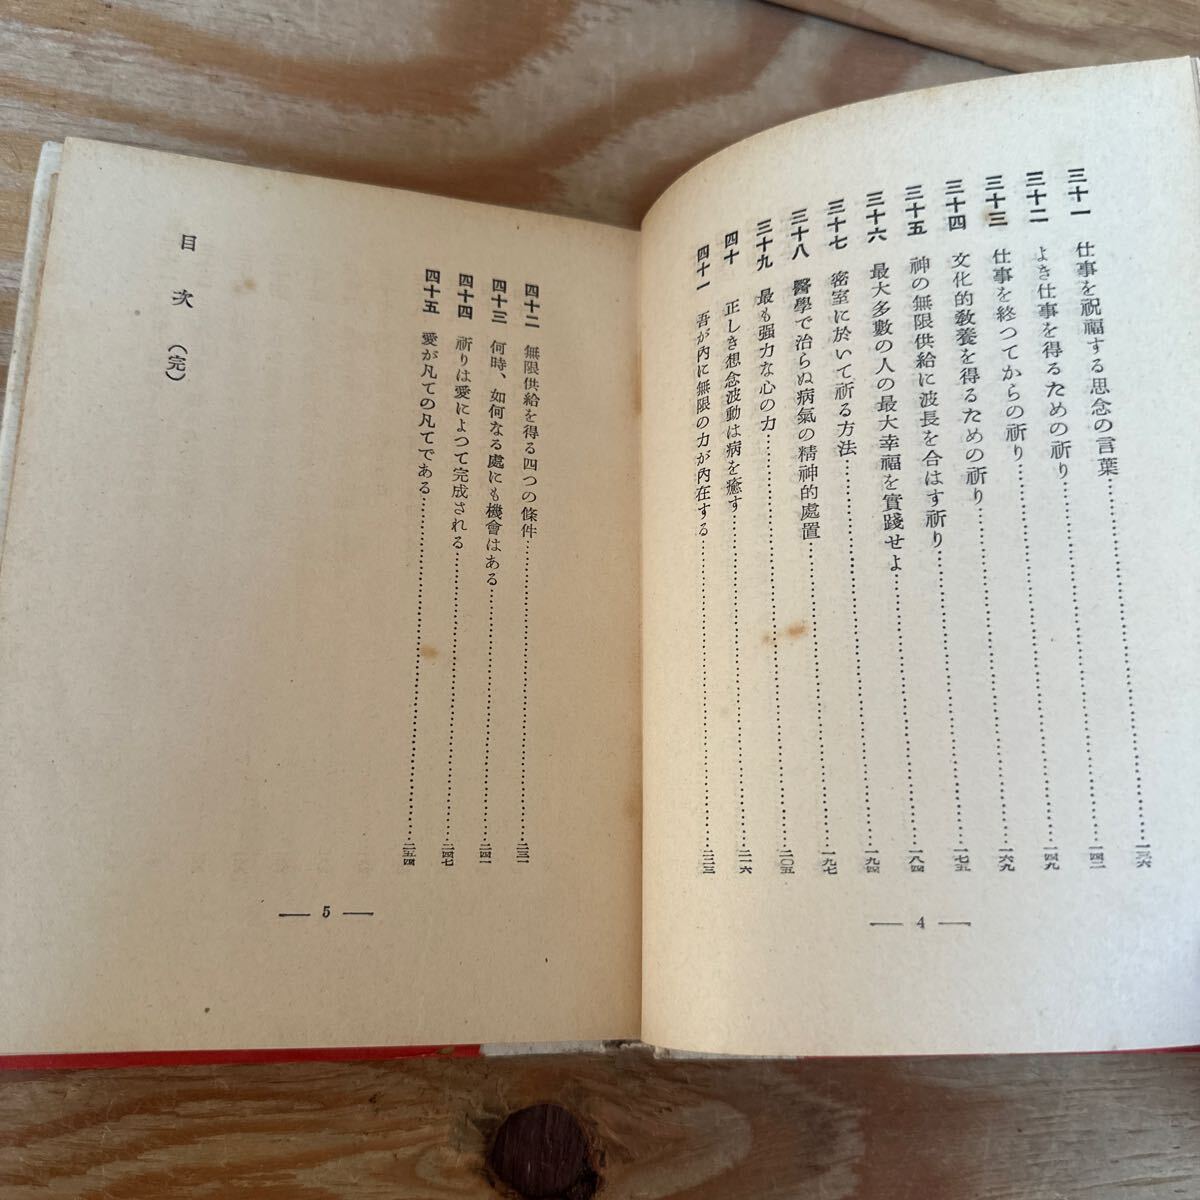 三十一 仕事を祝福する思念の言葉……一三六
三十二 よき仕事を得るための祈り……一四二
三十三 仕事を終つてからの祈り……一四九
三十四 文化的敎養を得るための祈り……一六九
三十五 神の無限供給に波長を合はす祈り……一七五
三十六 最大多數の人の最大幸福を實踐せよ……一八四
三十七 密室に於いて祈る方法……一九四
三十八 醫學で治らぬ病氣の精神的處置……一九七
三十九 最も强力な心の力……二〇五
四十 正しき想念波動は病を癒す……二一六
四十一 吾が內に無限の力が內在する……二二三
— 4 —
四十二 無限供給を得る四つの條件……二三一
四十三 何時、如何なる處にも機會はある……二四一
四十四 祈りは愛によつて完成される……二四七
四十五 愛が凡ての凡てである……二五四
目次（完）
— 5 —